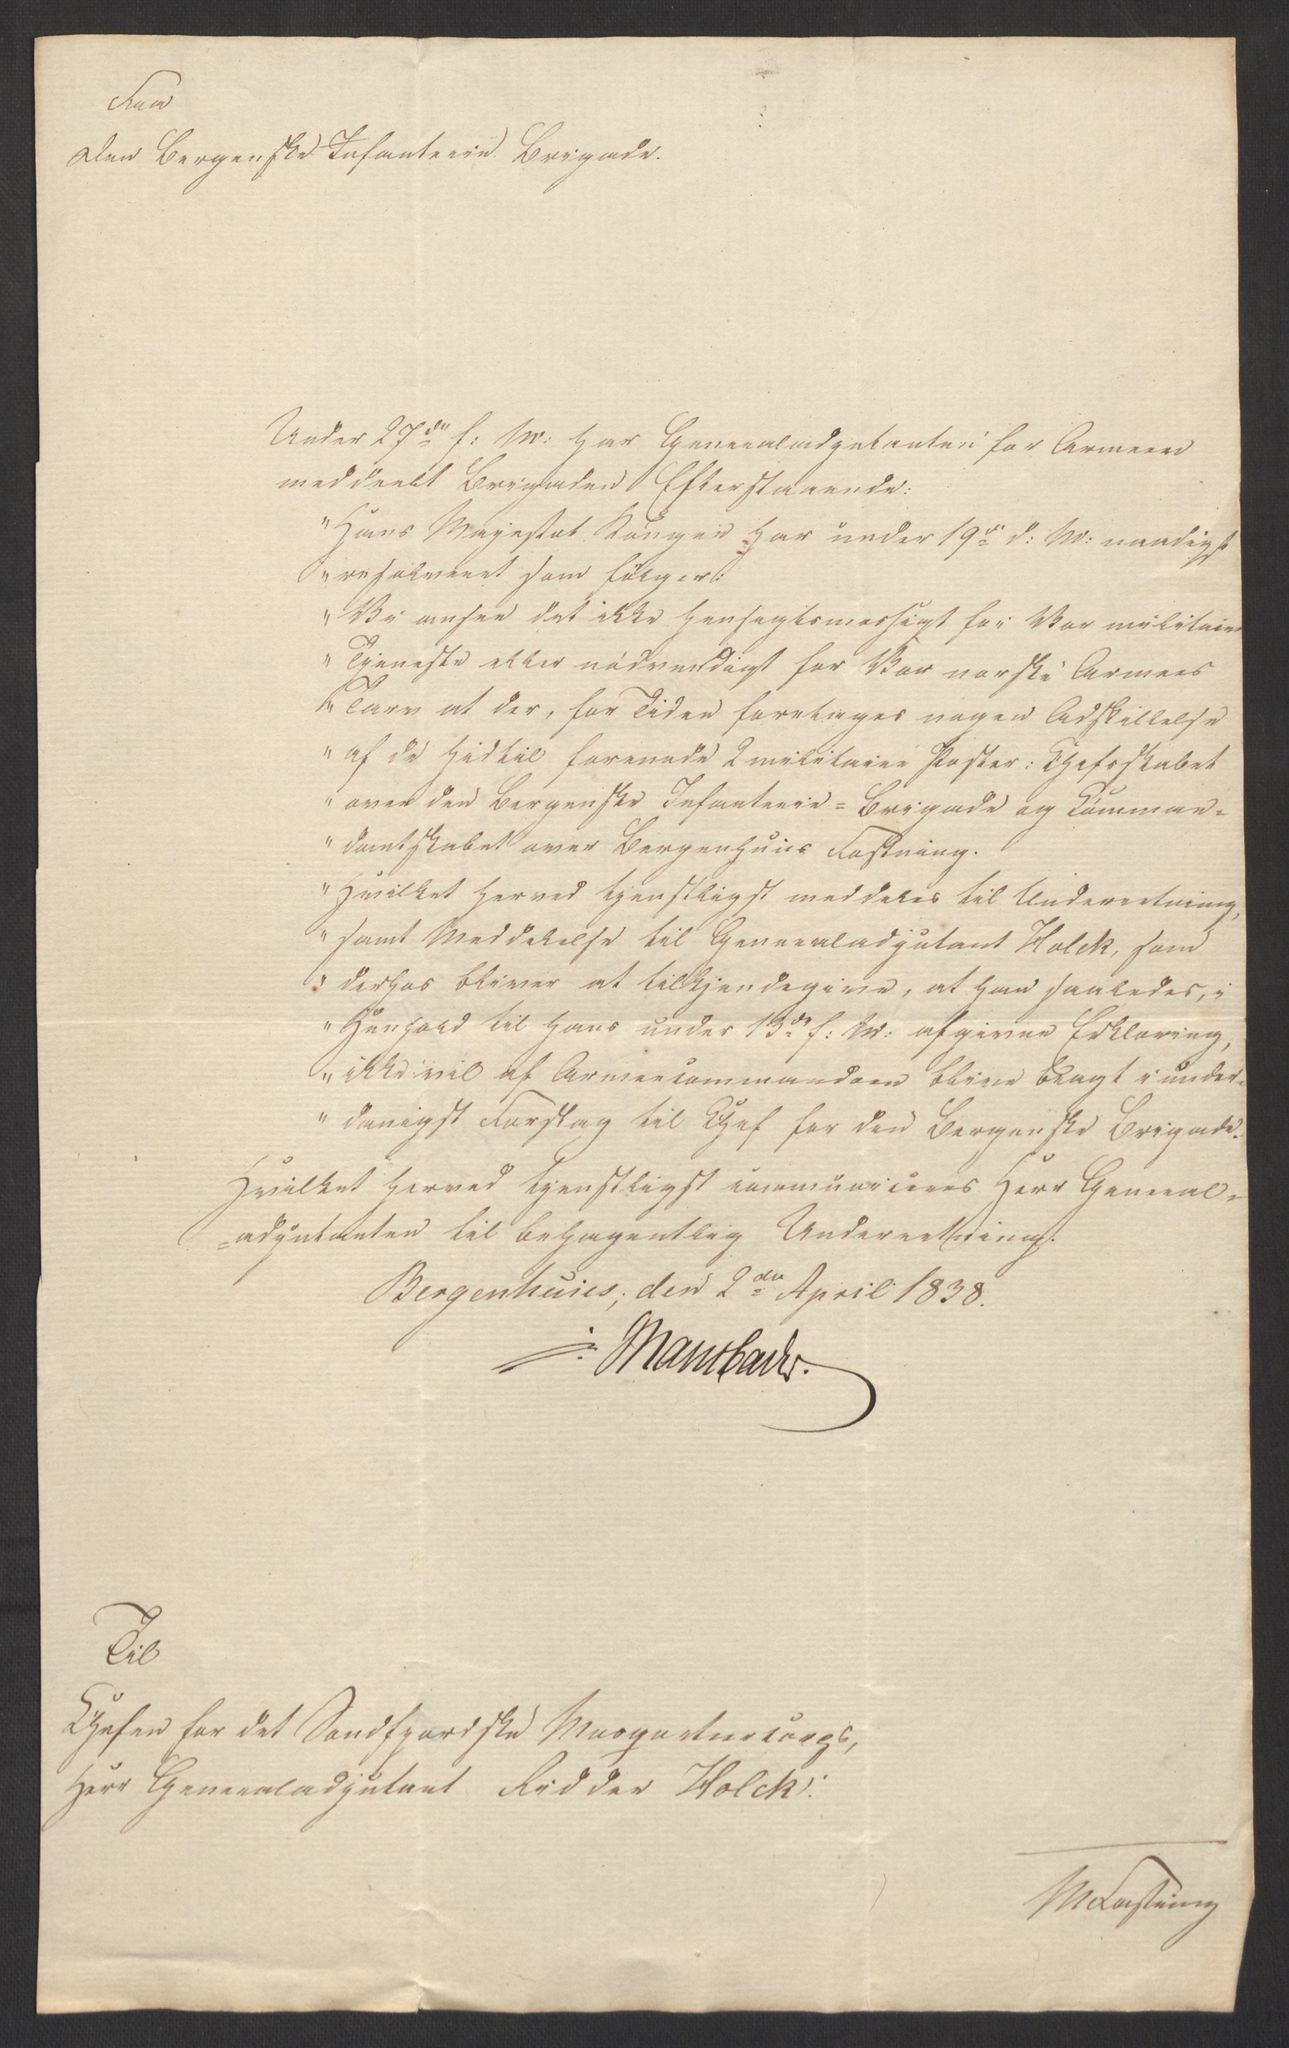 Fra
den Bergenske Infanterie Brigade.
Under 27de f: M: har Generaladjutanten for Armeen
meddeelt Brigaden Efterstaaende:
"Hans Majestæt Kongen har under 19de d: M: naadigst
"resolveret som følger:
"Vi ansee det ikke hensigtsmæssigt for Vor militaire
"Tjeneste eller nødvendigt for Vor norske Armees
"Tarv at der, for Tiden foretages nogen Adskillelse
"af de hidtil forenede 2 militaire Poster: Chefsskabet
"over den Bergenske Infanterie=Brigade og Comman=
"dantskabet over Bergenhuus Fæstning.
"Hvilket herved tjenstligst meddeles til Underretning,
"samt Meddelelse til Generaladjutant Holck, som
"derhos bliver at tilkjendegive, at han saaledes, i
"Henhold til hans under 13de f: M: afgivne Erklæring,
"ikke vil af Armeecommandoen blive bragt i under=
"danigst Forslag til Chef for den Bergenske Brigade.
Hvilket herved tjenstligst communiceres Herr General=
=adjutanten til behagentlig Underretning.
Bergenhuus, den 2den April 1838.
Mansbach.
Til
Chefen for det Søndfjordske Musqueteercorps,
Herr Generaladjutant Ridder Holck.